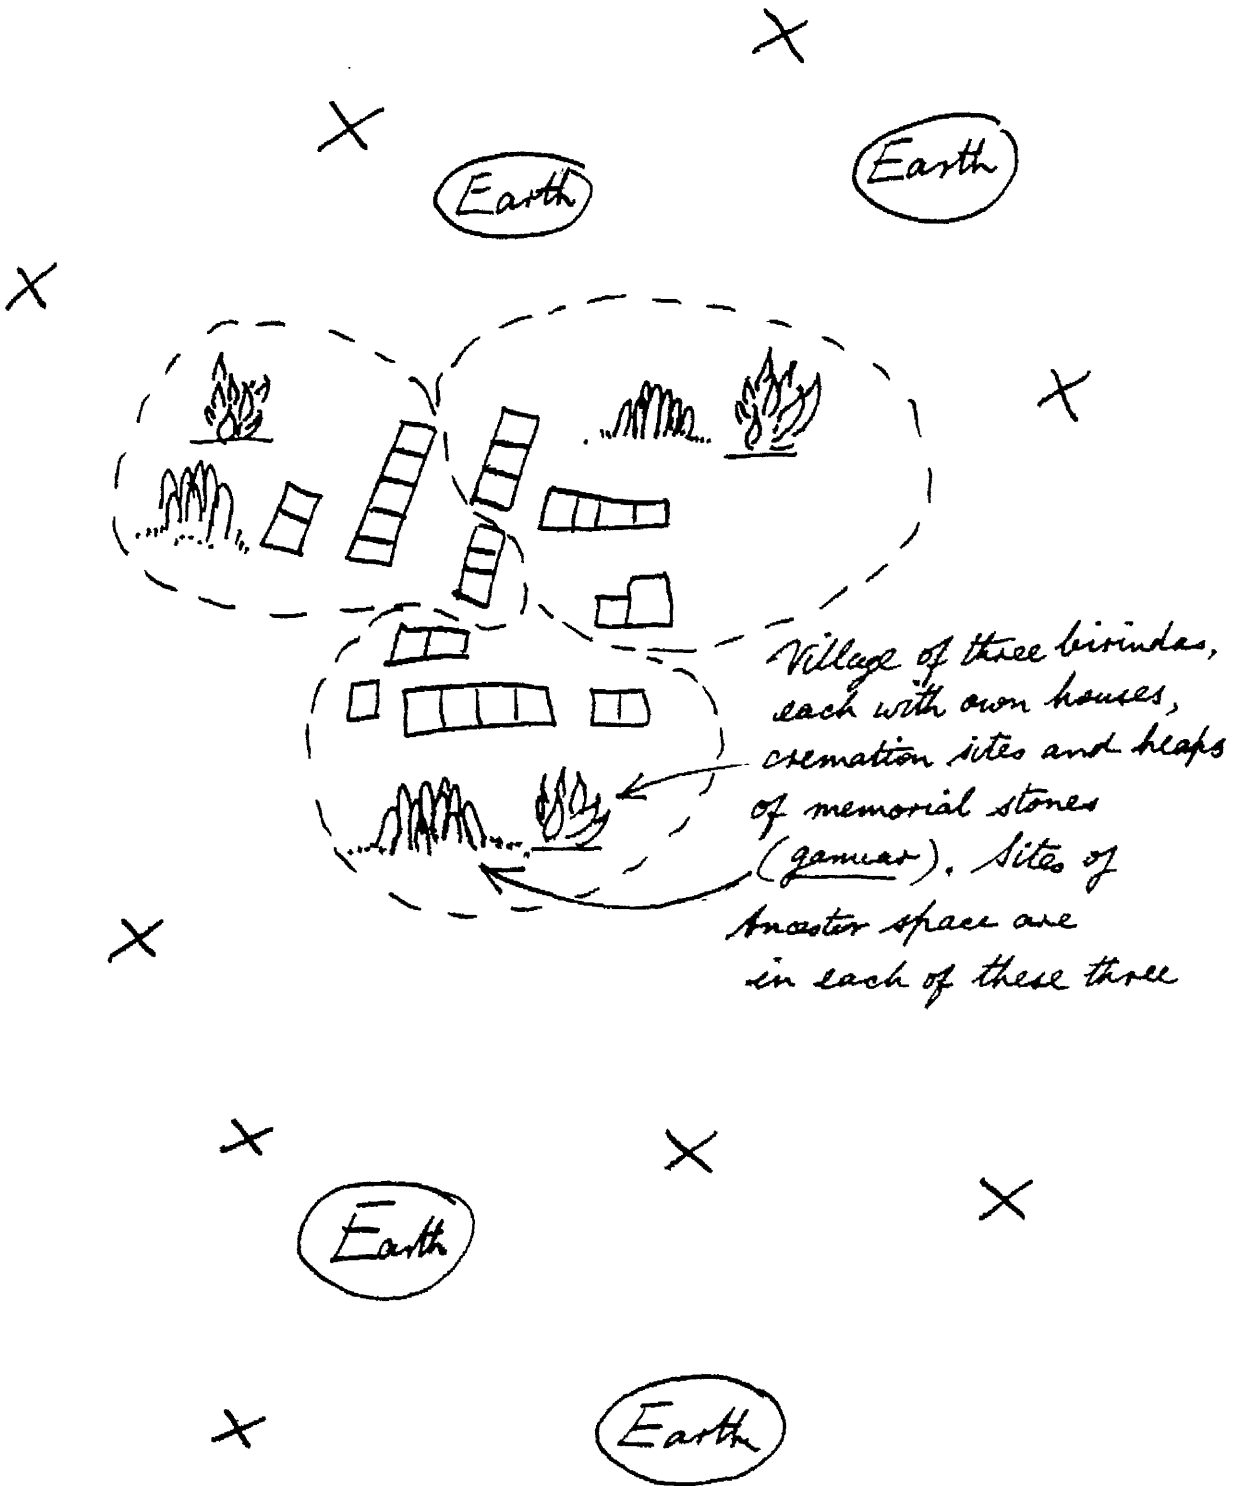 Earth
Earth
Village of three birindas,
each with own houses,
cremation sites and heaps
of memorial stones
(ganuar). Sites of
Ancestor space are
in each of these three
Earth
Earth